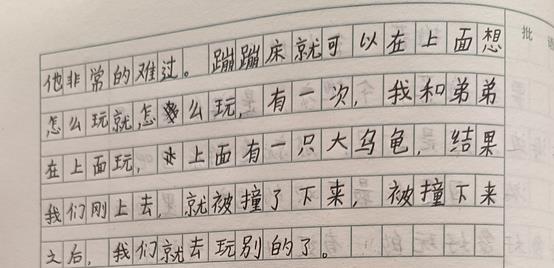 批
他非常的难过。蹦蹦床就可以在上面想
怎么玩就怎么玩，有一次，我和弟弟
在上面玩，上面有一只大乌龟，结果
我们刚上去，就被撞了下来，被撞下来
之后，我们就去玩别的了。